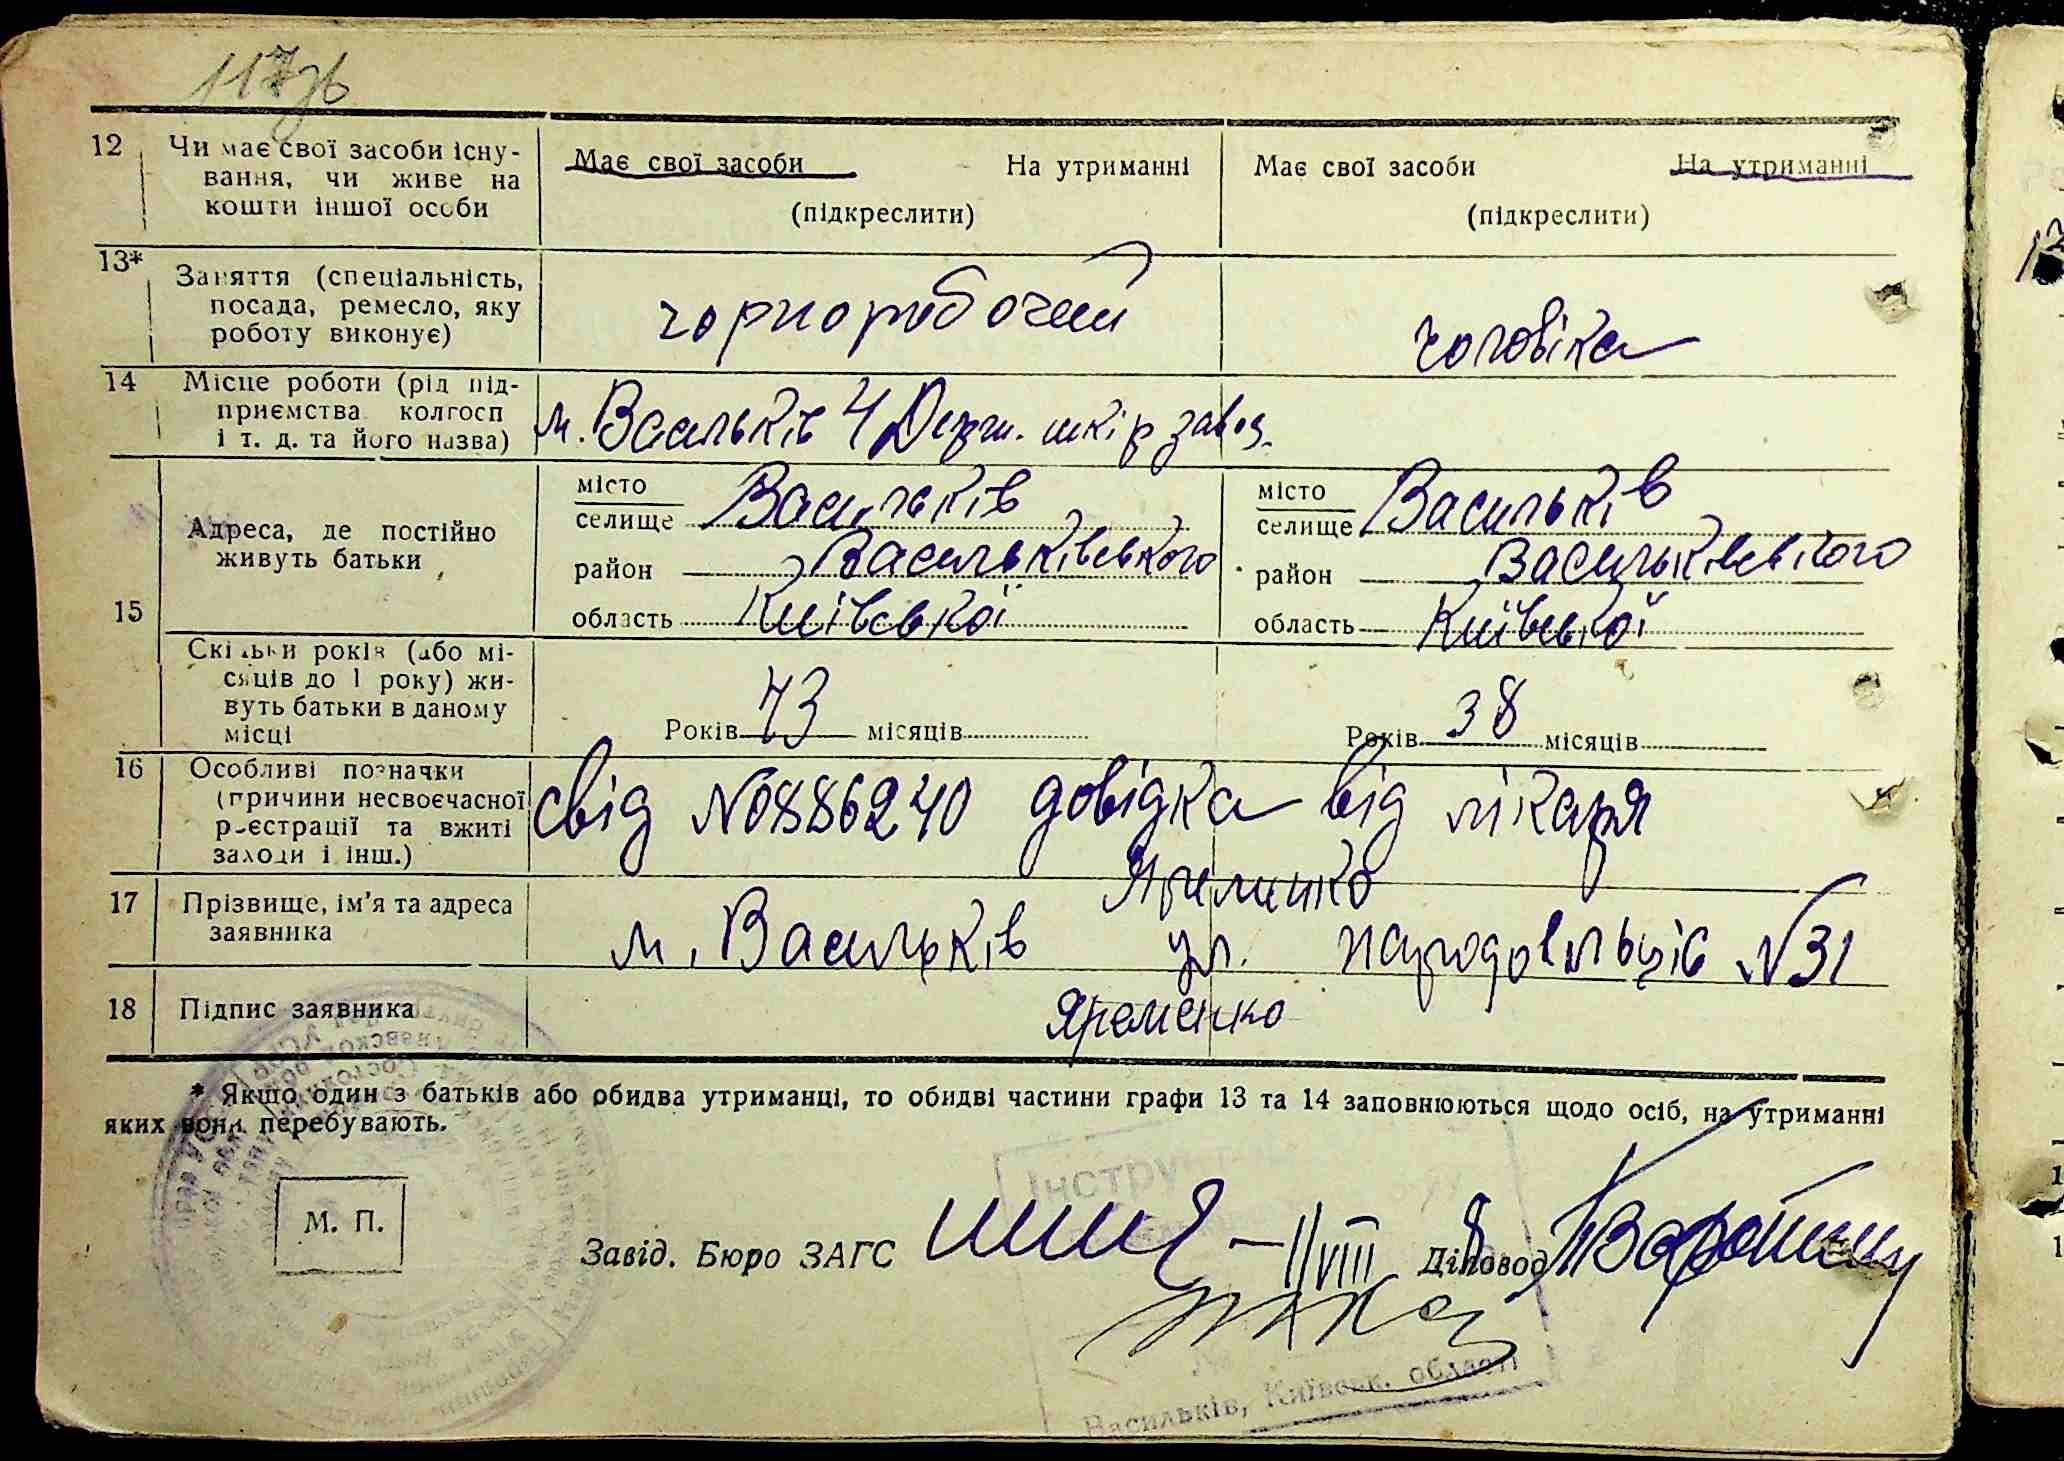 117зв
12 Чи має свої засоби існу-
вання, чи живе на
кошти іншої особи
Має свої засоби На утриманні
(підкреслити)
Має свої засоби На утриманні
(підкреслити)
13* Заняття (спеціальність,
посада, ремесло, яку
роботу виконує)
чорноробочий
чоловіка
14 Місце роботи (рід під-
приємства колгосп
і т. д. та його назва)
м. Васильків 4 Держ. шкір завод.
15
Адреса, де постійно
живуть батьки
місто
селище Васильків
район Васильківського
область Київської
місто
селище Васильків
район Васильківського
область Київської
Скільки років (або мі-
сяців до 1 року) жи-
вуть батьки в даному
місці
Років 43 місяців
Років 38 місяців
16 Особливі позначки
(причини несвоєчасної
реєстрації та вжиті
заходи і інш.)
свід №0886240 довідка від лікаря
17 Прізвище, ім'я та адреса
заявника
Яременко
м. Васильків ул. Народовльців №31
18 Підпис заявника
Яременко
* Якщо один з батьків або обидва утриманці, то обидві частини графи 13 та 14 заповнюються щодо осіб, на утриманні
яких вони перебувають.
М. П.
Завід. Бюро ЗАГС
II/VIII
Діловод
Інструк
Васильків, Київськ. області